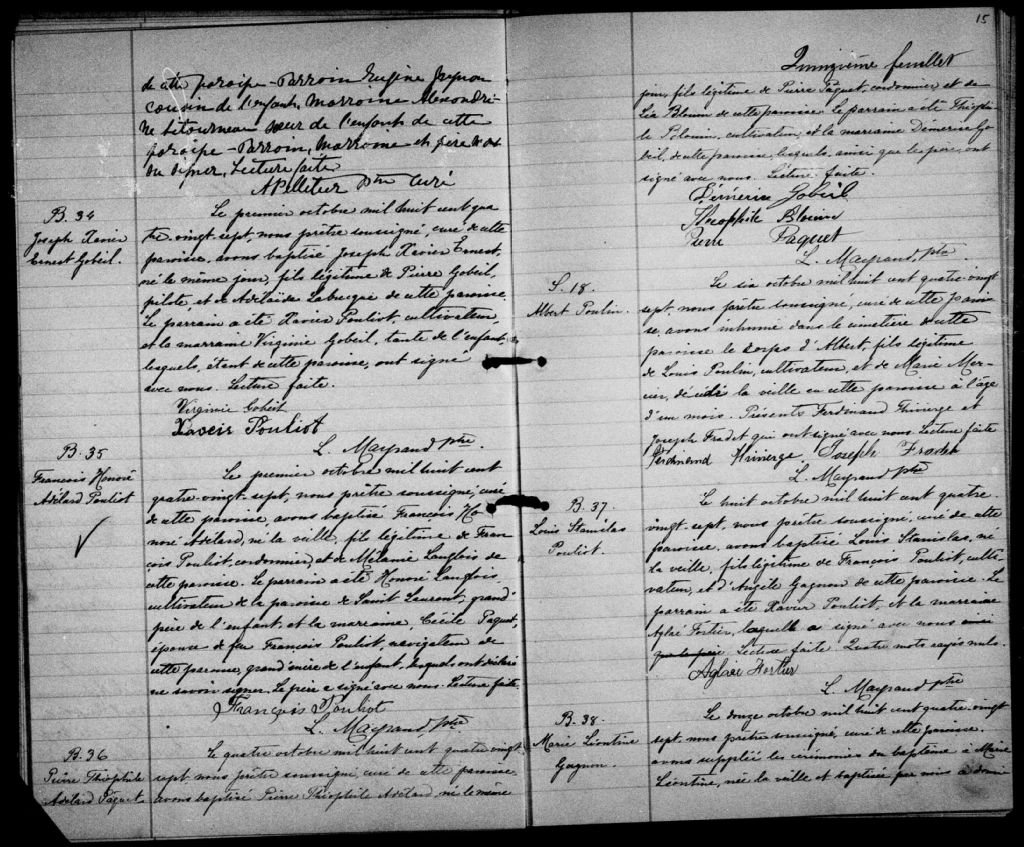 de cette paroisse - Parrain Eugène
cousin de l'enfant, Marraine Alexandri-
ne Letourneau sœur de l'enfant de cette
paroisse - Parrain, Marraine et père n'ont
su signer, Lecture faite
A Pelletier Ptre Curé
B. 34
Joseph Xavier
Ernest Gobeil.
Le premier octobre mil huit cent qua
tre-vingt sept, nous prêtre soussigné, curé de cette
paroisse, avons baptisé Joseph Xavier Ernest,
né le même jour, fils légitime de Pierre Gobeil,
pilote, et de Adélaïde Labecque de cette paroisse.
Le parrain a été Xavier Pouliot, cultivateur,
et la marraine Virginie Gobeil, tante de l'enfant,
lesquels, étant de cette paroisse, ont signé
avec nous. Lecture faite.
Virginie Gobeil
Xavier Pouliot
L. Mayrand ptre
B. 35
François Honoré
Adélard Pouliot
Le premier octobre mil huit cent
quatre-vingt-sept, nous prêtre soussigné, curé
de cette paroisse, avons baptisé François Ho-
noré Adélard, né la veille, fils légitime de Fran
çois Pouliot, cordonnier, et de Mélanie Langlois de
cette paroisse. Le parrain a été Honoré Langlois,
cultivateur de la paroisse de Saint Laurent, grand
père de l'enfant, et la marraine, Cécile Paquet,
épouse de feu François Pouliot, navigateur de
cette paroisse, grand'mère de l'enfant, lesquels ont déclaré
ne savoir signer. Le père a signé avec nous. Lecture faite.
François Pouliot
L. Mayrand ptre
B. 36
Pierre Théophile
Adélard Paquet.
Le quatre octobre mil huit cent quatre vingt
sept, nous prêtre soussigné, curé de cette paroisse,
avons baptisé Pierre Théophile Adélard, né le même
15
Quinzième feuillet
jour, fils légitime de Pierre Paquet, cordonnier et de
Léa Blouin de cette paroisse. Le parrain a été Théophi-
le Blouin, cultivateur, et la marraine Démerise Go
beil, de cette paroisse, lesquels, ainsi que le père, ont
signé avec nous. Lecture faite.
Démerise Gobeil
Théophile Blouin
Pierre Paquet
L. Mayrand, ptre
S. 18.
Albert Poulin.
Le six octobre mil huit cent quatre-vingt
sept, nous prêtre soussigné, curé de cette parois
se, avons inhumé dans le cimetière de cette
paroisse le corps d'Albert, fils légitime
de Louis Poulin, cultivateur, et de Marie Mer-
cier, décédé la veille en cette paroisse à l'âge
d'un mois. Présents Ferdinand Thivierge et
Joseph Fradet qui ont signé avec nous. Lecture faite
Ferdinand Thivierge, Joseph Fradet
L. Mayrand ptre
B. 37.
Louis Stanislas
Pouliot.
Le huit octobre mil huit cent quatre-
vingt sept, nous prêtre soussigné, curé de cette
paroisse, avons baptisé Louis Stanislas, né
la veille, fils légitime de François Pouliot, culti-
vateur, et d'Angèle Gagnon de cette paroisse. Le
parrain a été Xavier Pouliot, et la marraine
Aglaé Fortier, laquelle a signé avec nous ainsi
que le père Lecture faite Quatre mots rayés nuls.
Aglaée Fortier
L. Mayrand ptre
B. 38.
Marie Léontine
Gagnon.
Le douze octobre mil huit cent quatre-vingt
sept, nous prêtre soussigné, curé de cette paroisse,
avons suppléé les cérémonies du baptême à Marie
Léontine, née la veille et baptisée par nous à domi